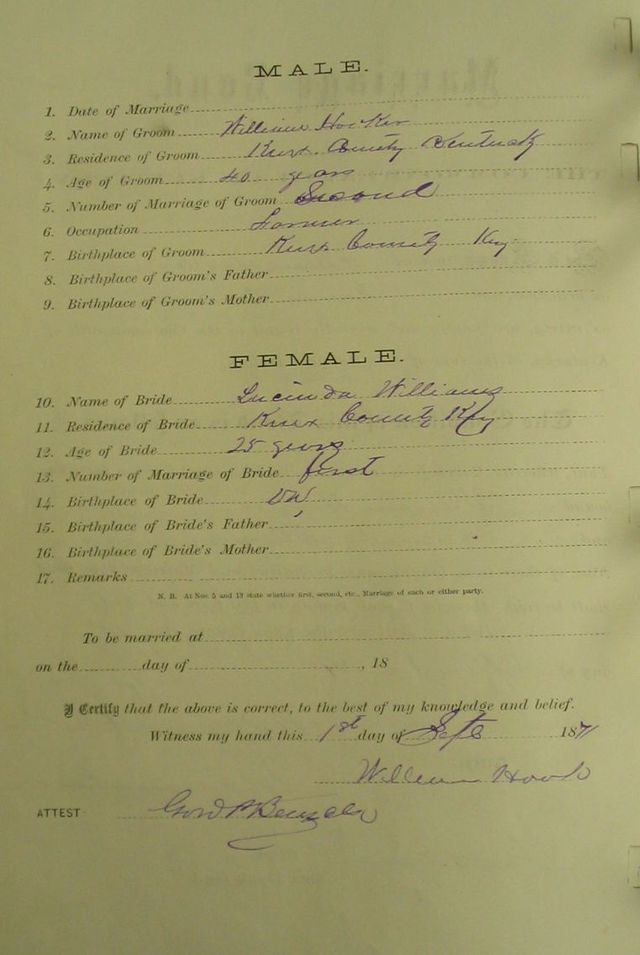 MALE.
1. Date of Marriage
2. Name of Groom William
3. Residence of Groom Knox County Kentucky
4. Age of Groom 40 years
5. Number of Marriage of Groom Second
6. Occupation Farmer
7. Birthplace of Groom Knox County Ky
8. Birthplace of Groom's Father
9. Birthplace of Groom's Mother
FEMALE.
10. Name of Bride Lucinda Williams
11. Residence of Bride Knox County Ky
12. Age of Bride 25 years
13. Number of Marriage of Bride first
14. Birthplace of Bride
15. Birthplace of Bride's Father
16. Birthplace of Bride's Mother
17. Remarks
N. B. At Nos. 5 and 13 state whether first, second, etc., Marriage of each or either party.
To be married at
on the day of , 18
I Certify that the above is correct, to the best of my knowledge and belief.
Witness my hand this 1st day of Sept 1871
William
ATTEST